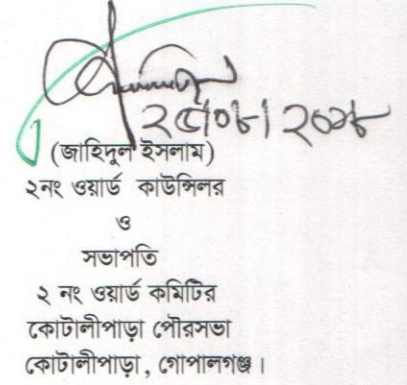 ২৫/০৮/২০১৮
(জাহিদুল ইসলাম)
২নং ওয়ার্ড কাউন্সিলর
ও
সভাপতি
২ নং ওয়ার্ড কমিটির
কোটালীপাড়া পৌরসভা
কোটালীপাড়া, গোপালগঞ্জ।